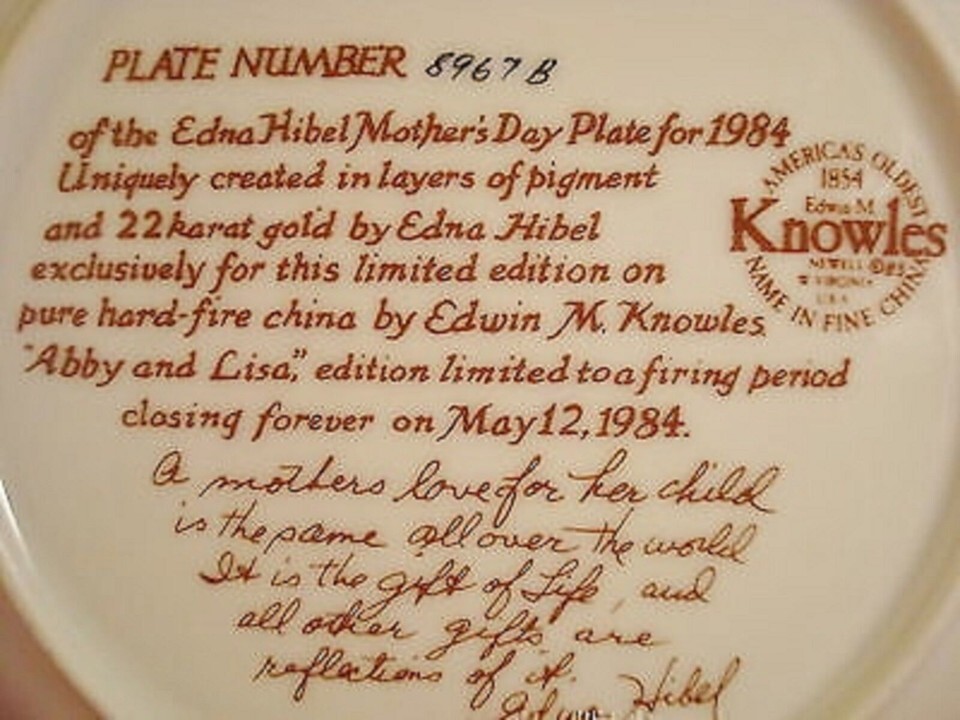 PLATE NUMBER 8967 B
of the Edna Hibel Mother's Day Plate for 1984
Uniquely created in layers of pigment
and 22 karat gold by Edna Hibel
exclusively for this limited edition on
pure hard-fire china by Edwin M. Knowles.
"Abby and Lisa," edition limited to a firing period
closing forever on May 12, 1984.
AMERICA'S OLDEST
1854
Edwin M.
Knowles
NEWELL
W VIRGINIA
U.S.A
NAME IN FINE CHINA
A mothers love for her child
is the same all over the world
It is the gift of Life, and
all other gifts are
reflections of it.
Edna Hibel